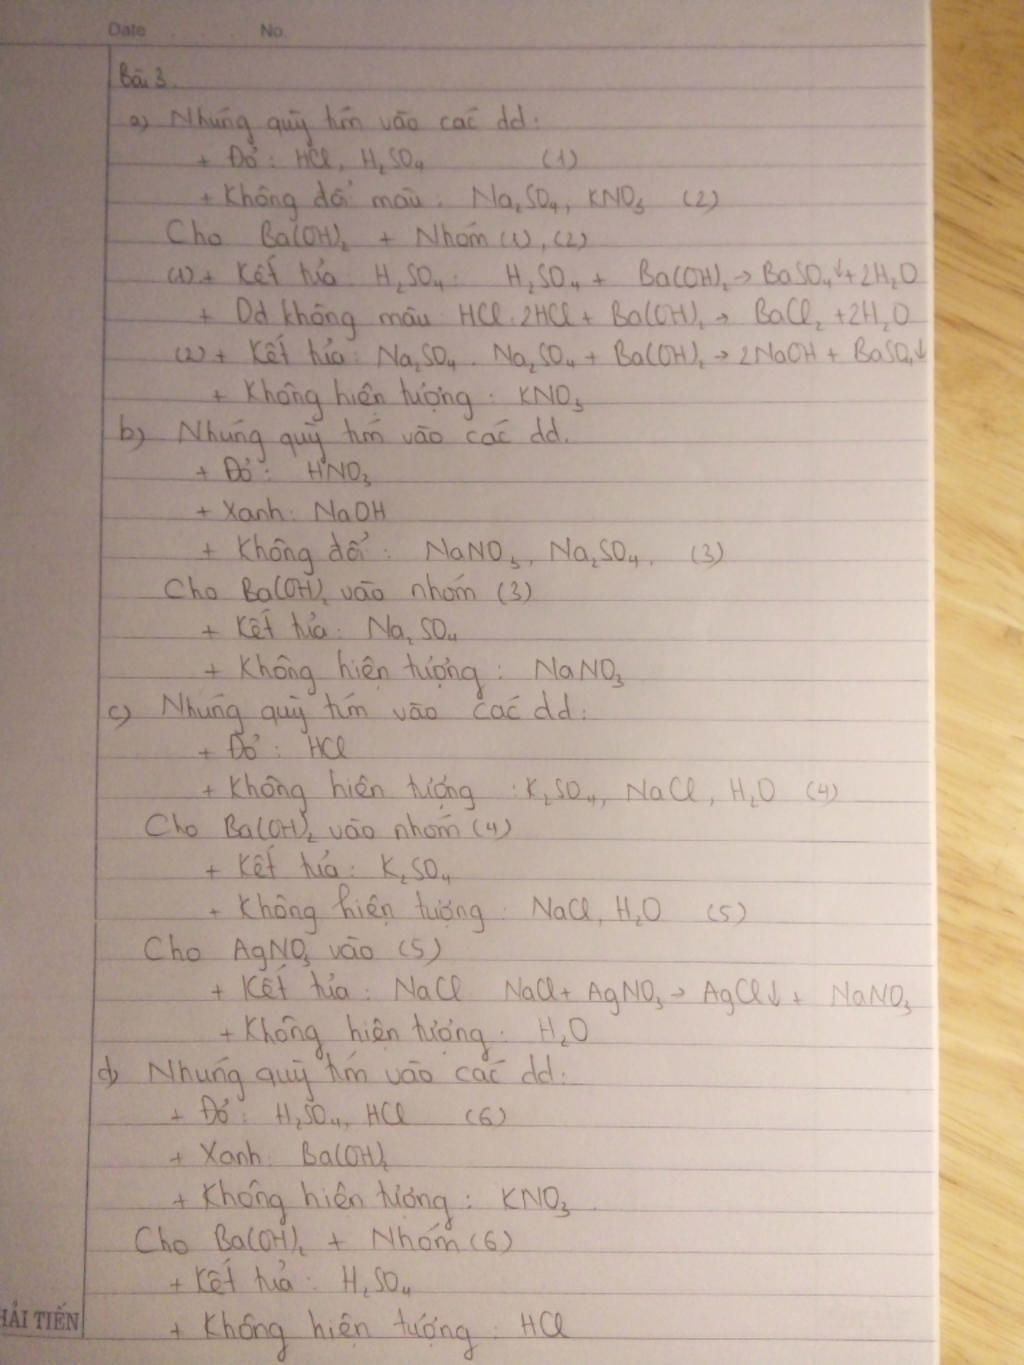 Date No.
Bài 3.
a) Nhúng quỳ tím vào các dd:
+ Đỏ: HCl, H₂SO₄ (1)
+ Không đổi màu: Na₂SO₄, KNO₃ (2)
Cho Ba(OH)₂ + Nhóm (1), (2)
(1) + Kết tủa: H₂SO₄: H₂SO₄ + Ba(OH)₂ → BaSO₄↓ + 2H₂O
+ Dd không màu: HCl: 2HCl + Ba(OH)₂ → BaCl₂ + 2H₂O
(2) + Kết tủa: Na₂SO₄. Na₂SO₄ + Ba(OH)₂ → 2NaOH + BaSO₄↓
+ Không hiện tượng: KNO₃
b) Nhúng quỳ tím vào các dd.
+ Đỏ: HNO₃
+ Xanh: NaOH
+ Không đổi: NaNO₃, Na₂SO₄. (3)
Cho Ba(OH)₂ vào nhóm (3)
+ Kết tủa: Na₂SO₄
+ Không hiện tượng: NaNO₃
c) Nhúng quỳ tím vào các dd:
+ Đỏ: HCl
+ Không hiện tượng: K₂SO₄, NaCl, H₂O (4)
Cho Ba(OH)₂ vào nhóm (4)
+ Kết tủa: K₂SO₄
+ Không hiện tượng: NaCl, H₂O (5)
Cho AgNO₃ vào (5)
+ Kết tủa: NaCl NaCl + AgNO₃ → AgCl↓ + NaNO₃
+ Không hiện tượng: H₂O
d) Nhúng quỳ tím vào các dd:
+ Đỏ: H₂SO₄, HCl (6)
+ Xanh: Ba(OH)₂
+ Không hiện tượng: KNO₃.
Cho Ba(OH)₂ + Nhóm (6)
+ Kết tủa: H₂SO₄
HẢI TIẾN
+ Không hiện tượng: HCl